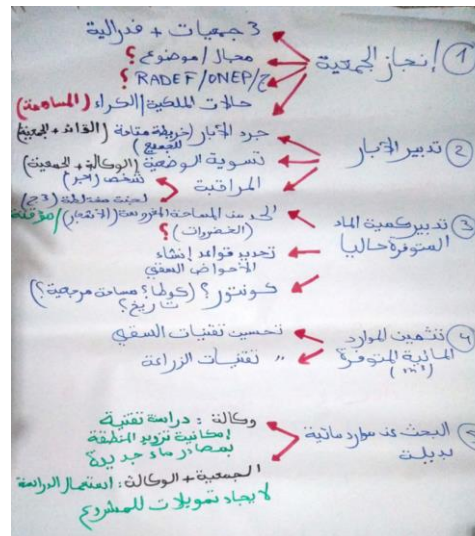 3 جمعيات + فدرالية
① إنجاز الجمعية
مجال / موضوع؟
ج/RADEF/ONEP؟
حالات الملكية / الكراء (المساهمة)
② تدبير الآبار
جرد الآبار (خريطة متاحة للجميع) (القائد + الجمعية)
تسوية الوضعية (الوكالة + الجمعية)
المراقبة
لجنة مختلطة (3 ج)
③ تدبير كمية الماء المتوفرة حاليا
الحد من المساحة المغروسة (الأشجار) / مؤقتة
(الخضروات)؟
تحديد قواعد إنشاء
الأحواض السقي
كونتور؟ (كوطا؟ مساحة مرجعية؟
تاريخ؟)
④ تثمين الموارد
المائية المتوفرة
(m³)
تحسين تقنيات السقي
〃 تقنيات الزراعة
⑤ البحث عن موارد مائية
بديلة
وكالة : دراسة تقنية
إمكانية تزويد المنطقة
بمصادر ماء جديدة
الجمعية + الوكالة : استعمال الدراسة
لإيجاد تمويلات للمشروع